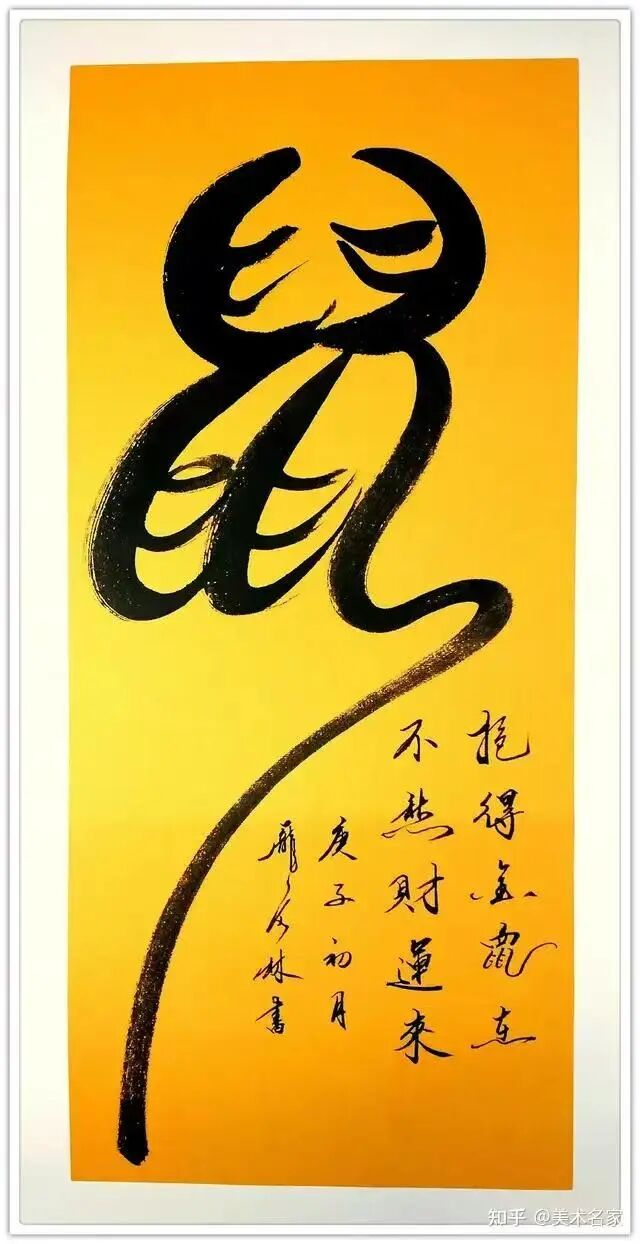 鼠
抱得金鼠在
不愁財運來
庚子初月
林書
知乎 @美术名家